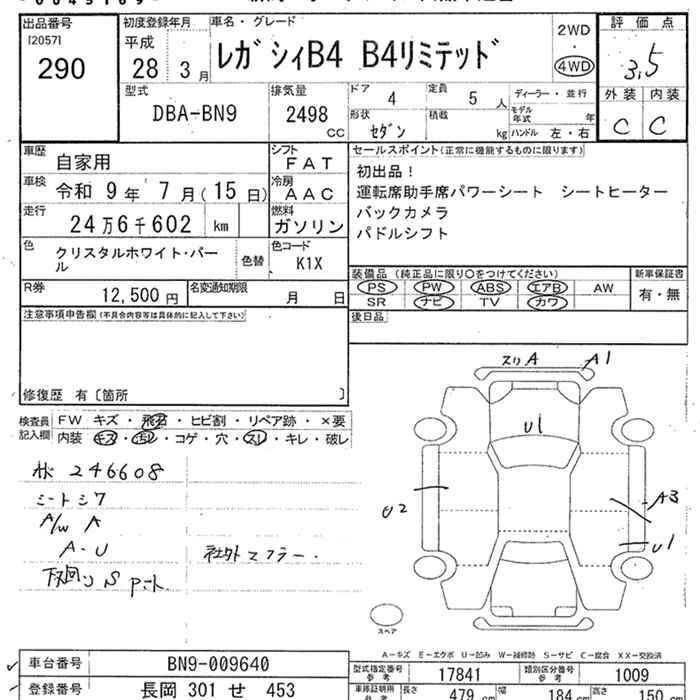 出品番号
[2057]
290
初度登録年月
平成
28年 3月
車名・グレード
レガシィB4 B4リミテッド
2WD
・
4WD
評価点
3,5
外装 内装
C C
型式
DBA-BN9
排気量
2498
CC
ドア 4
定員 5 人
ディーラー・並行
形状 セダン
積載 kg
モデル年式 年
ハンドル 左・右
車歴 自家用
シフト FAT
車検 令和 9年 7月(15日)
冷房 AAC
走行 24万6千602 km
燃料 ガソリン
色 クリスタルホワイト・パール
色替
色コード K1X
R券 12,500 円
名変通知期限 月 日
セールスポイント(正常に機能するものに限ります)
初出品!
運転席助手席パワーシート シートヒーター
バックカメラ
パドルシフト
装備品 (純正品に限り○をつけてください)
PS PW ABS エアB AW
SR ナビ TV カワ
新車保証書
有・無
後日品
注意事項申告欄(不具合内容等は具体的に記入して下さい)
修復歴 有〔箇所 〕
検査員記入欄
FW キズ・飛石・ヒビ割・リペア跡・×要
内装 キズ・汚レ・コゲ・穴・スレ・キレ・破レ
246608
シートシワ
A/W A
A-U
下回り S
社外マフラー・
スリA A1
U1
U2
A3
U1
スペア
A-キズ E-エクボ U-凹み W-補修跡 S-サビ C-腐食 XX-交換済
車台番号 BN9-009640
登録番号 長岡 301 せ 453
型式指定番号 参考 17841
類別区分番号 参考 1009
車庫証明用 参考
長さ 479 cm
幅 184 cm
高さ 150 cm